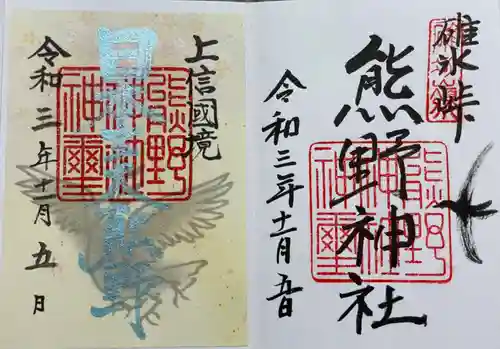 碓氷峠
熊野神社
令和三年十一月五日
熊野
神社
神璽
上信國境
日本武尊
令和三年十一月五日
熊野
神社
神璽